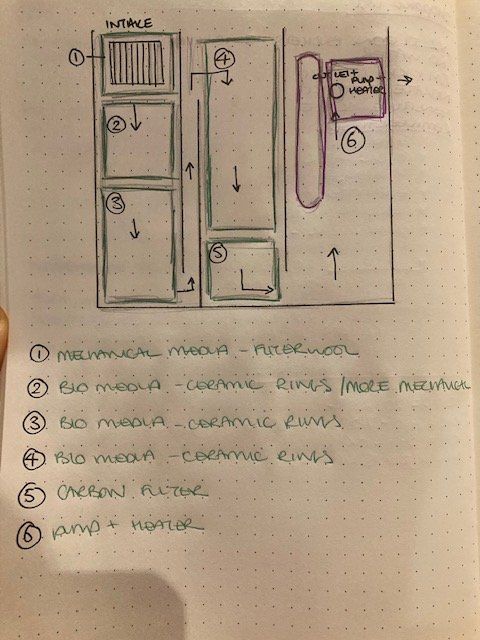 INTAKE
①
②
③
④
⑤
OUTLET +
PUMP +
HEATER
⑥
① MECHANICAL MEDIA - FILTERWOOL
② BIO MEDIA - CERAMIC RINGS / MORE MECHANICAL
③ BIO MEDIA - CERAMIC RINGS
④ BIO MEDIA - CERAMIC RINGS
⑤ CARBON FILTER
⑥ PUMP + HEATER